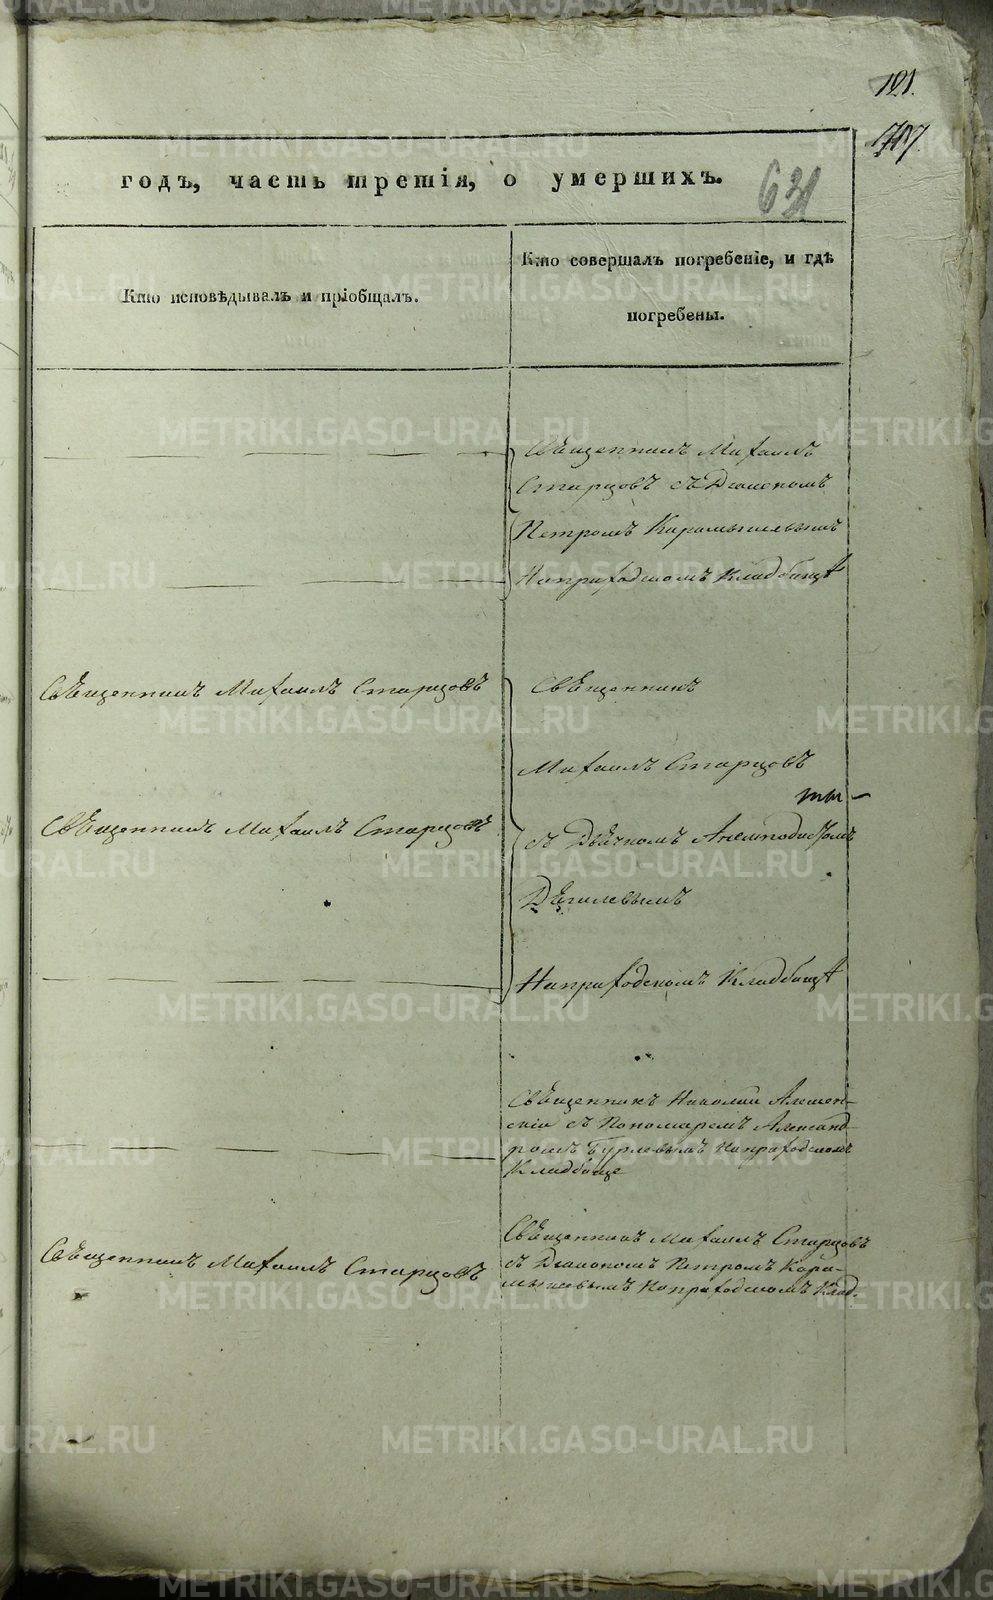 121.
годъ, часть третія, о умершихъ.
631
Кто исповѣдывалъ и пріобщалъ.
Кто совершалъ погребеніе, и гдѣ
погребены.
Священникъ Михаилъ
Старцовъ съ Діакономъ
Петромъ Карамышевымъ
На приходскомъ Кладбищѣ
Священникъ Михаилъ Старцовъ
Священникъ
Михаилъ Старцовъ
Священникъ Михаилъ Старцовъ
съ Дьячкомъ
На приходскомъ Кладбищѣ
Священникъ Николай
съ Пономаремъ Александ-
ромъ На приходскомъ
Кладбище
Священникъ Михаилъ Старцовъ
Священникъ Михаилъ Старцовъ
съ Діакономъ Петромъ Кара-
мышевымъ На приходскомъ Клад.
METRIKI.GASO-URAL.RU